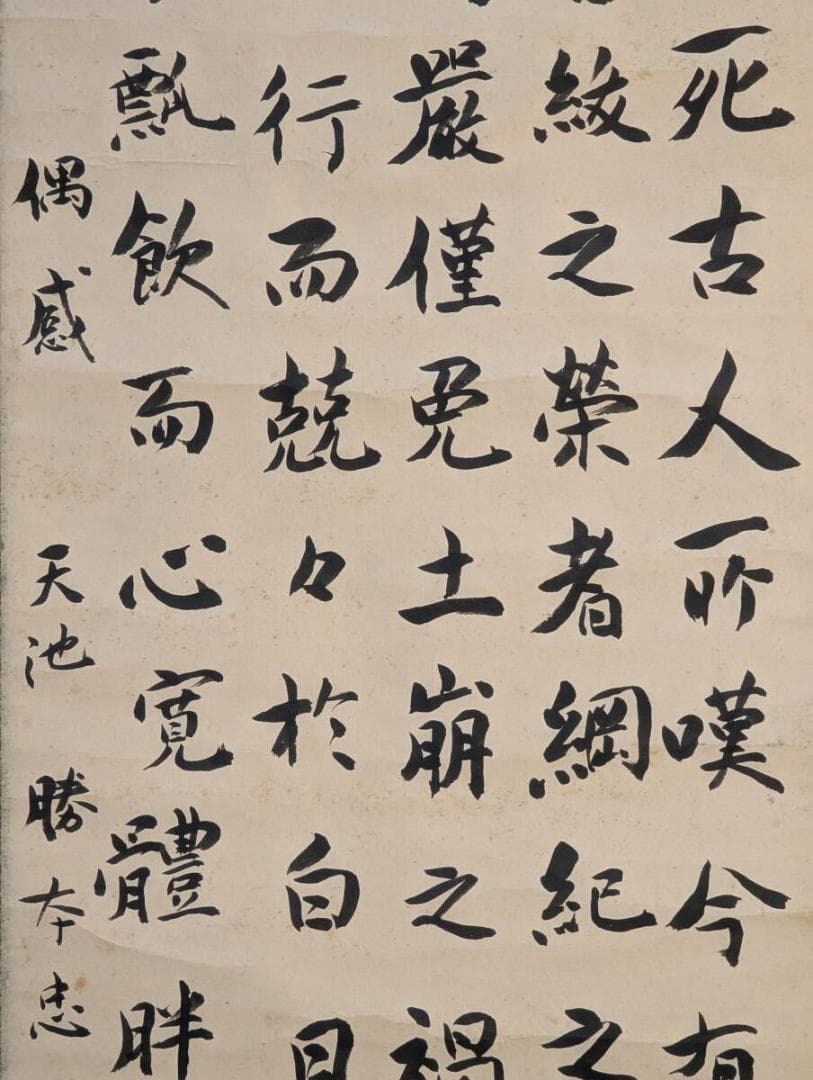 死古人所嘆今有
綬之榮者綱紀之
嚴僅免土崩之禍
行而兢々於白日
瓢飲而心寬體胖
偶感 天池 勝本忠